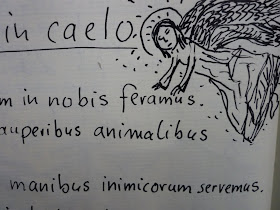 in caelo.
m in nobis feramus.
auperibus animalibus
manibus inimicorum servemus.